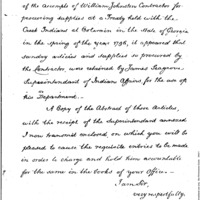 of the accounts of William Johnston Contractor for
procuring supplies at a Treaty held with the
Creek Indians at Colerain in the State of Georgia
in the spring of the year 1796, it appeared that
sundry articles and supplies so procured by
the Contractor, was retained by James Seagrove,
Superintendant of Indian Affairs for the use of
his Department.
A Copy of the Abstract of those Articles,
with the receipt of the Superintendant annexed
I now transmit enclosed, on which you will be
pleased to cause the requisite entries to be made
in order to charge and hold him accountable
for the same in the books of your Office.
I am Sir,
very respectfully,